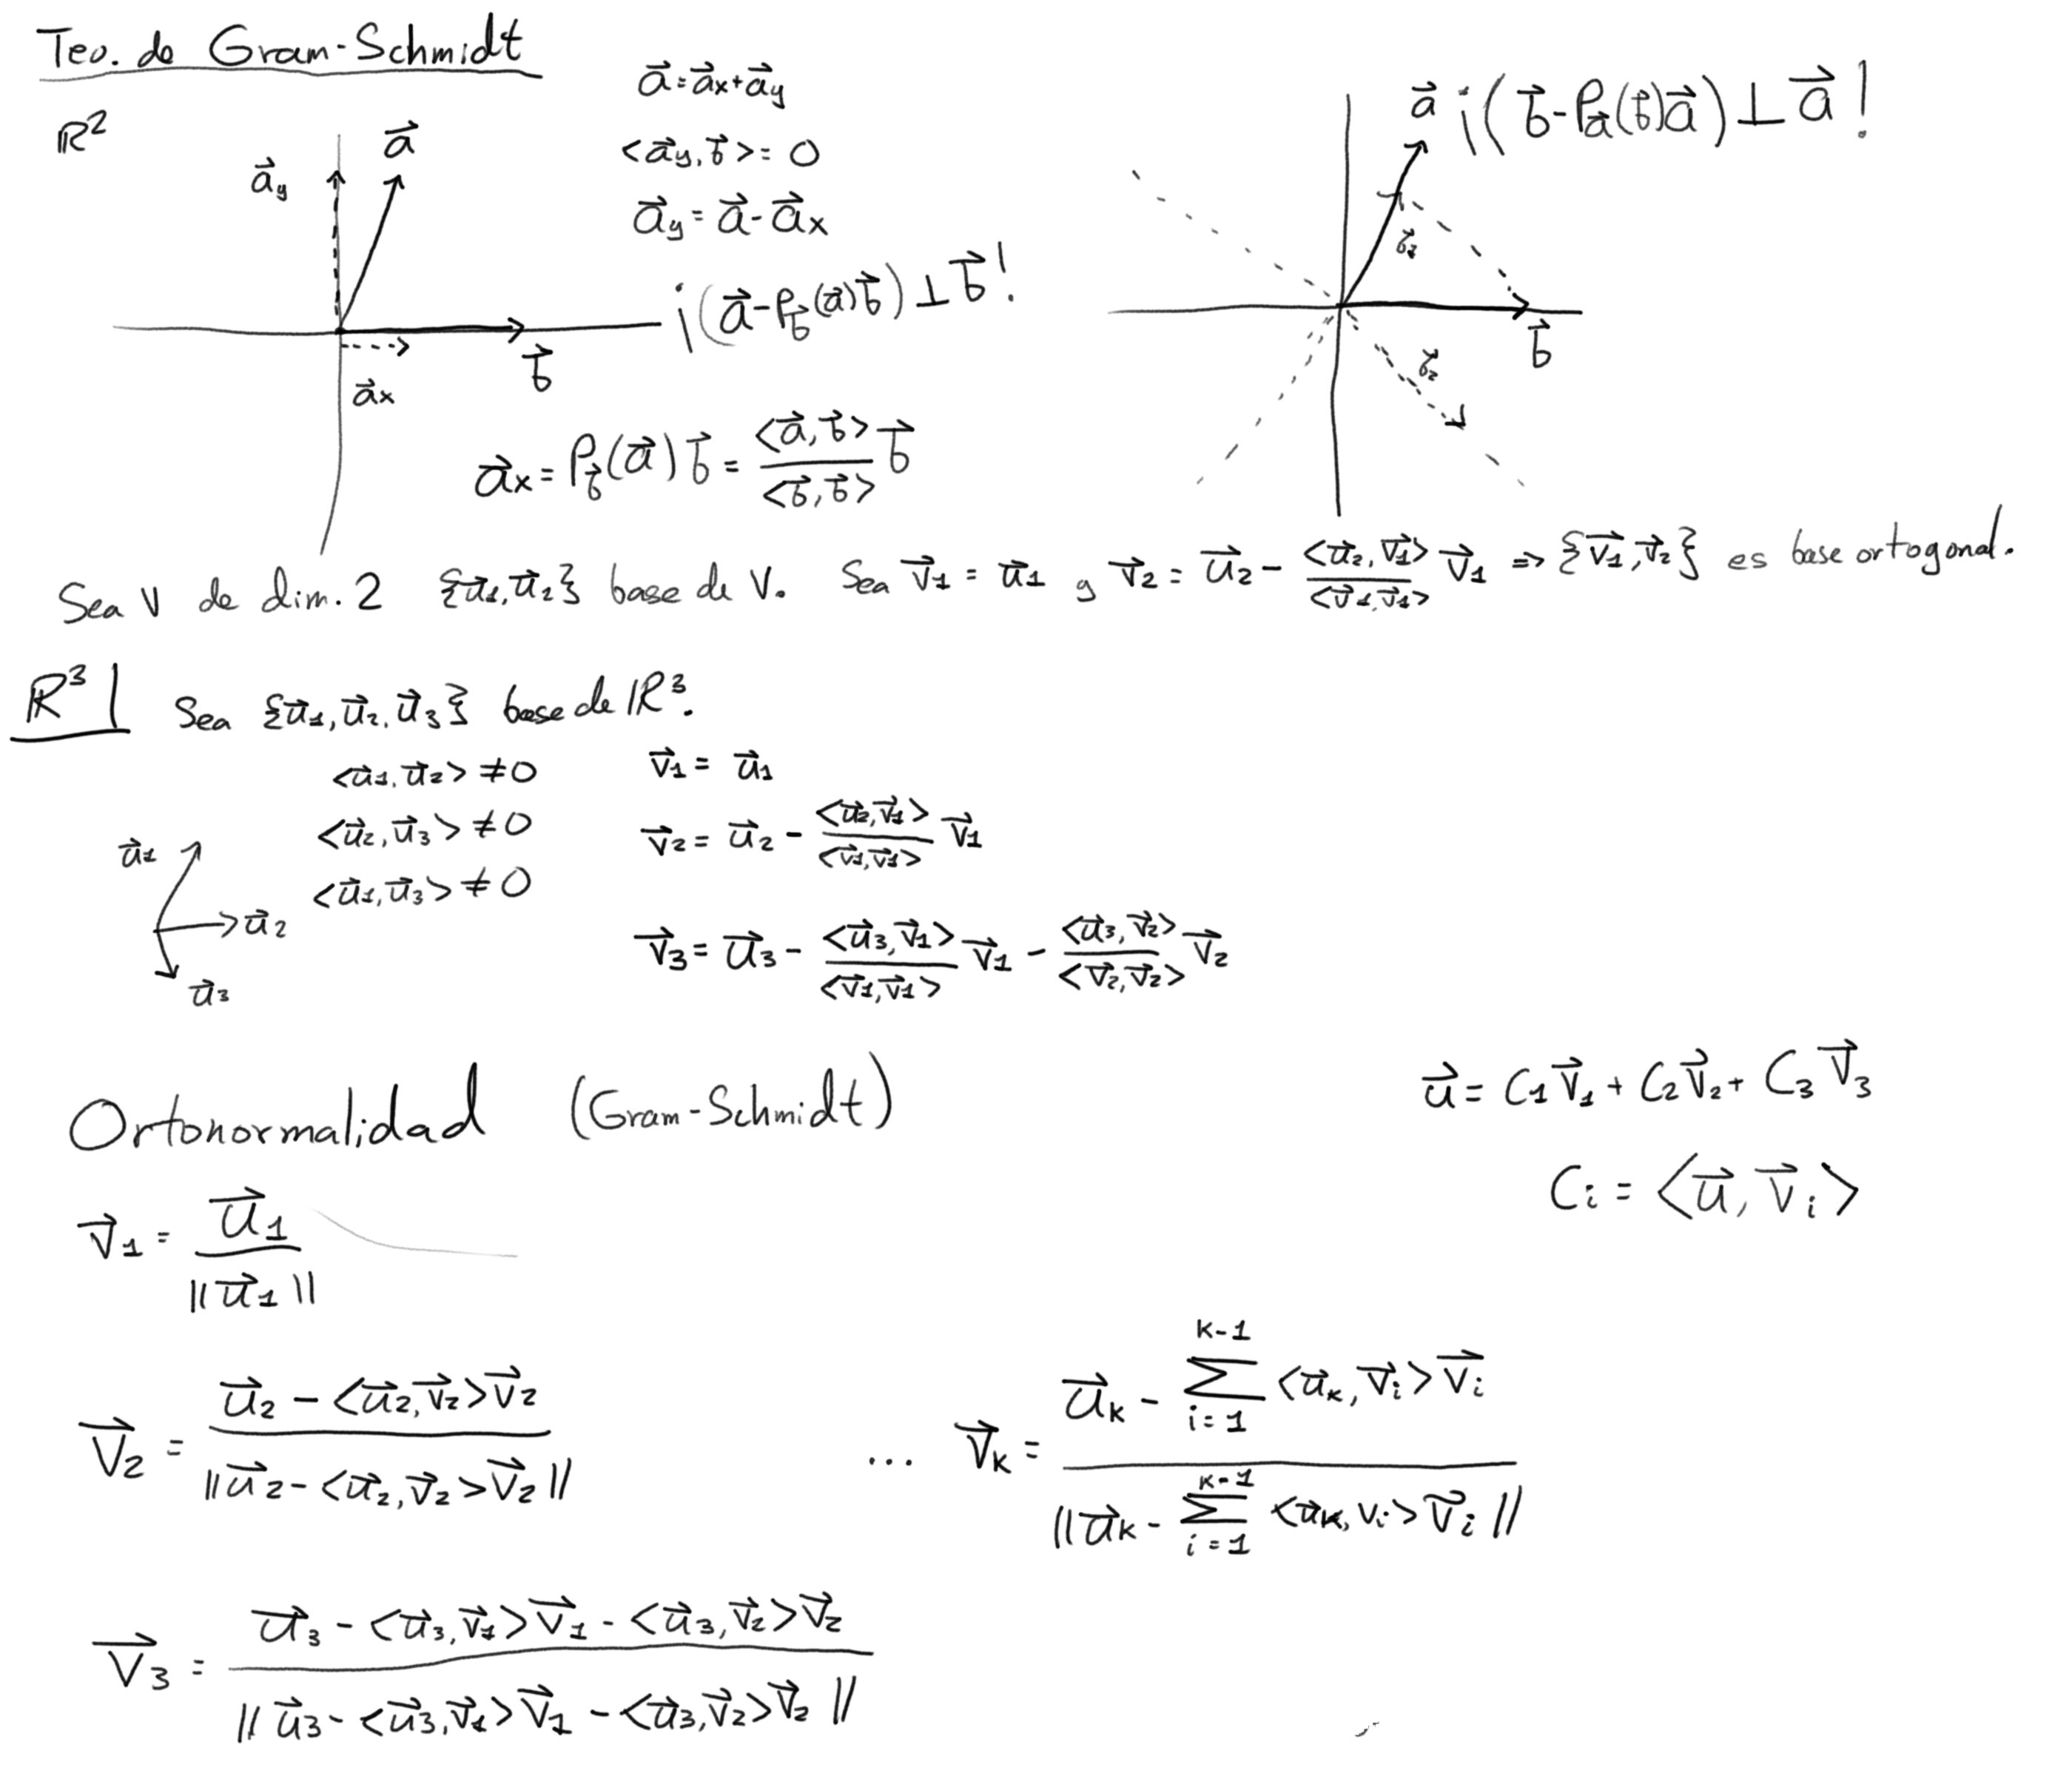 Teo. de Gram-Schmidt
ℝ²
a⃗
a⃗y
a⃗x
b⃗
a⃗ = a⃗x + a⃗y
<a⃗y, b⃗> = 0
a⃗y = a⃗ - a⃗x
¡(a⃗ - P_b⃗(a⃗)b⃗) ⊥ b⃗!
a⃗x = P_b⃗(a⃗) b⃗ = <a⃗, b⃗>/<b⃗, b⃗> b⃗
a⃗ ¡(b⃗ - P_a⃗(b⃗)a⃗) ⊥ a⃗!
b⃗
b⃗₂
Sea V de dim. 2 {u⃗1, u⃗2} base de V. Sea v⃗1 = u⃗1 y v⃗2 = u⃗2 - <u⃗2, v⃗1>/<v⃗1, v⃗1> v⃗1 => {v⃗1, v⃗2} es base ortogonal.
ℝ³ Sea {u⃗1, u⃗2, u⃗3} base de ℝ³.
<u⃗1, u⃗2> ≠ 0
<u⃗2, u⃗3> ≠ 0
<u⃗1, u⃗3> ≠ 0
u⃗1
u⃗2
u⃗3
v⃗1 = u⃗1
v⃗2 = u⃗2 - <u⃗2, v⃗1>/<v⃗1, v⃗1> v⃗1
v⃗3 = u⃗3 - <u⃗3, v⃗1>/<v⃗1, v⃗1> v⃗1 - <u⃗3, v⃗2>/<v⃗2, v⃗2> v⃗2
Ortonormalidad (Gram-Schmidt)
u⃗ = C1 v⃗1 + C2 v⃗2 + C3 v⃗3
Ci = <u⃗, v⃗i>
v⃗1 = u⃗1/||u⃗1||
v⃗2 = (u⃗2 - <u⃗2, v⃗2>v⃗2)/||u⃗2 - <u⃗2, v⃗2>v⃗2||
... v⃗k = (u⃗k - Σ_{i=1}^{k-1} <u⃗k, v⃗i>v⃗i)/||u⃗k - Σ_{i=1}^{k-1} <u⃗k, vi>v⃗i||
v⃗3 = (u⃗3 - <u⃗3, v⃗1>v⃗1 - <u⃗3, v⃗2>v⃗2)/||u⃗3 - <u⃗3, v⃗1>v⃗1 - <u⃗3, v⃗2>v⃗2||